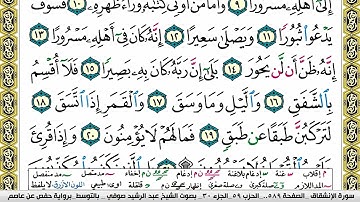 إِلَىٰٓ أَهْلِهِۦ مَسْرُورًا ۝٩ وَأَمَّا مَنْ أُوتِىَ كِتَـٰبَهُۥ وَرَآءَ ظَهْرِهِۦ ۝١٠ فَسَوْفَ
يَدْعُوا۟ ثُبُورًا ۝١١ وَيَصْلَىٰ سَعِيرًا ۝١٢ إِنَّهُۥ كَانَ فِىٓ أَهْلِهِۦ مَسْرُورًا ۝١٣
إِنَّهُۥ ظَنَّ أَن لَّن يَحُورَ ۝١٤ بَلَىٰٓ إِنَّ رَبَّهُۥ كَانَ بِهِۦ بَصِيرًا ۝١٥ فَلَآ أُقْسِمُ
بِٱلشَّفَقِ ۝١٦ وَٱلَّيْلِ وَمَا وَسَقَ ۝١٧ وَٱلْقَمَرِ إِذَا ٱتَّسَقَ ۝١٨
لَتَرْكَبُنَّ طَبَقًا عَن طَبَقٍ ۝١٩ فَمَا لَهُمْ لَا يُؤْمِنُونَ ۝٢٠ وَإِذَا قُرِئَ
سورة الإنشقاق - الصفحة ٥٨٩ - الحزب ٥٩ - الجزء ٣٠ - بصوت الشيخ عبد الرشيد صوفي - بالتوسط - برواية حفص عن عاصم